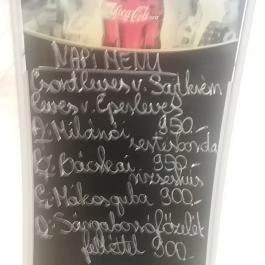 Coca-Cola
NAPI MENÜ
Csontleves v. Sajtkrém
leves v. Eperleves
A, Milánói 950.-
sertésborda
B, Bácskai 950.-
rizseshús
C, Mákosguba 900.-
D, Sárgaborsófőzelék
feltéttel 900.-